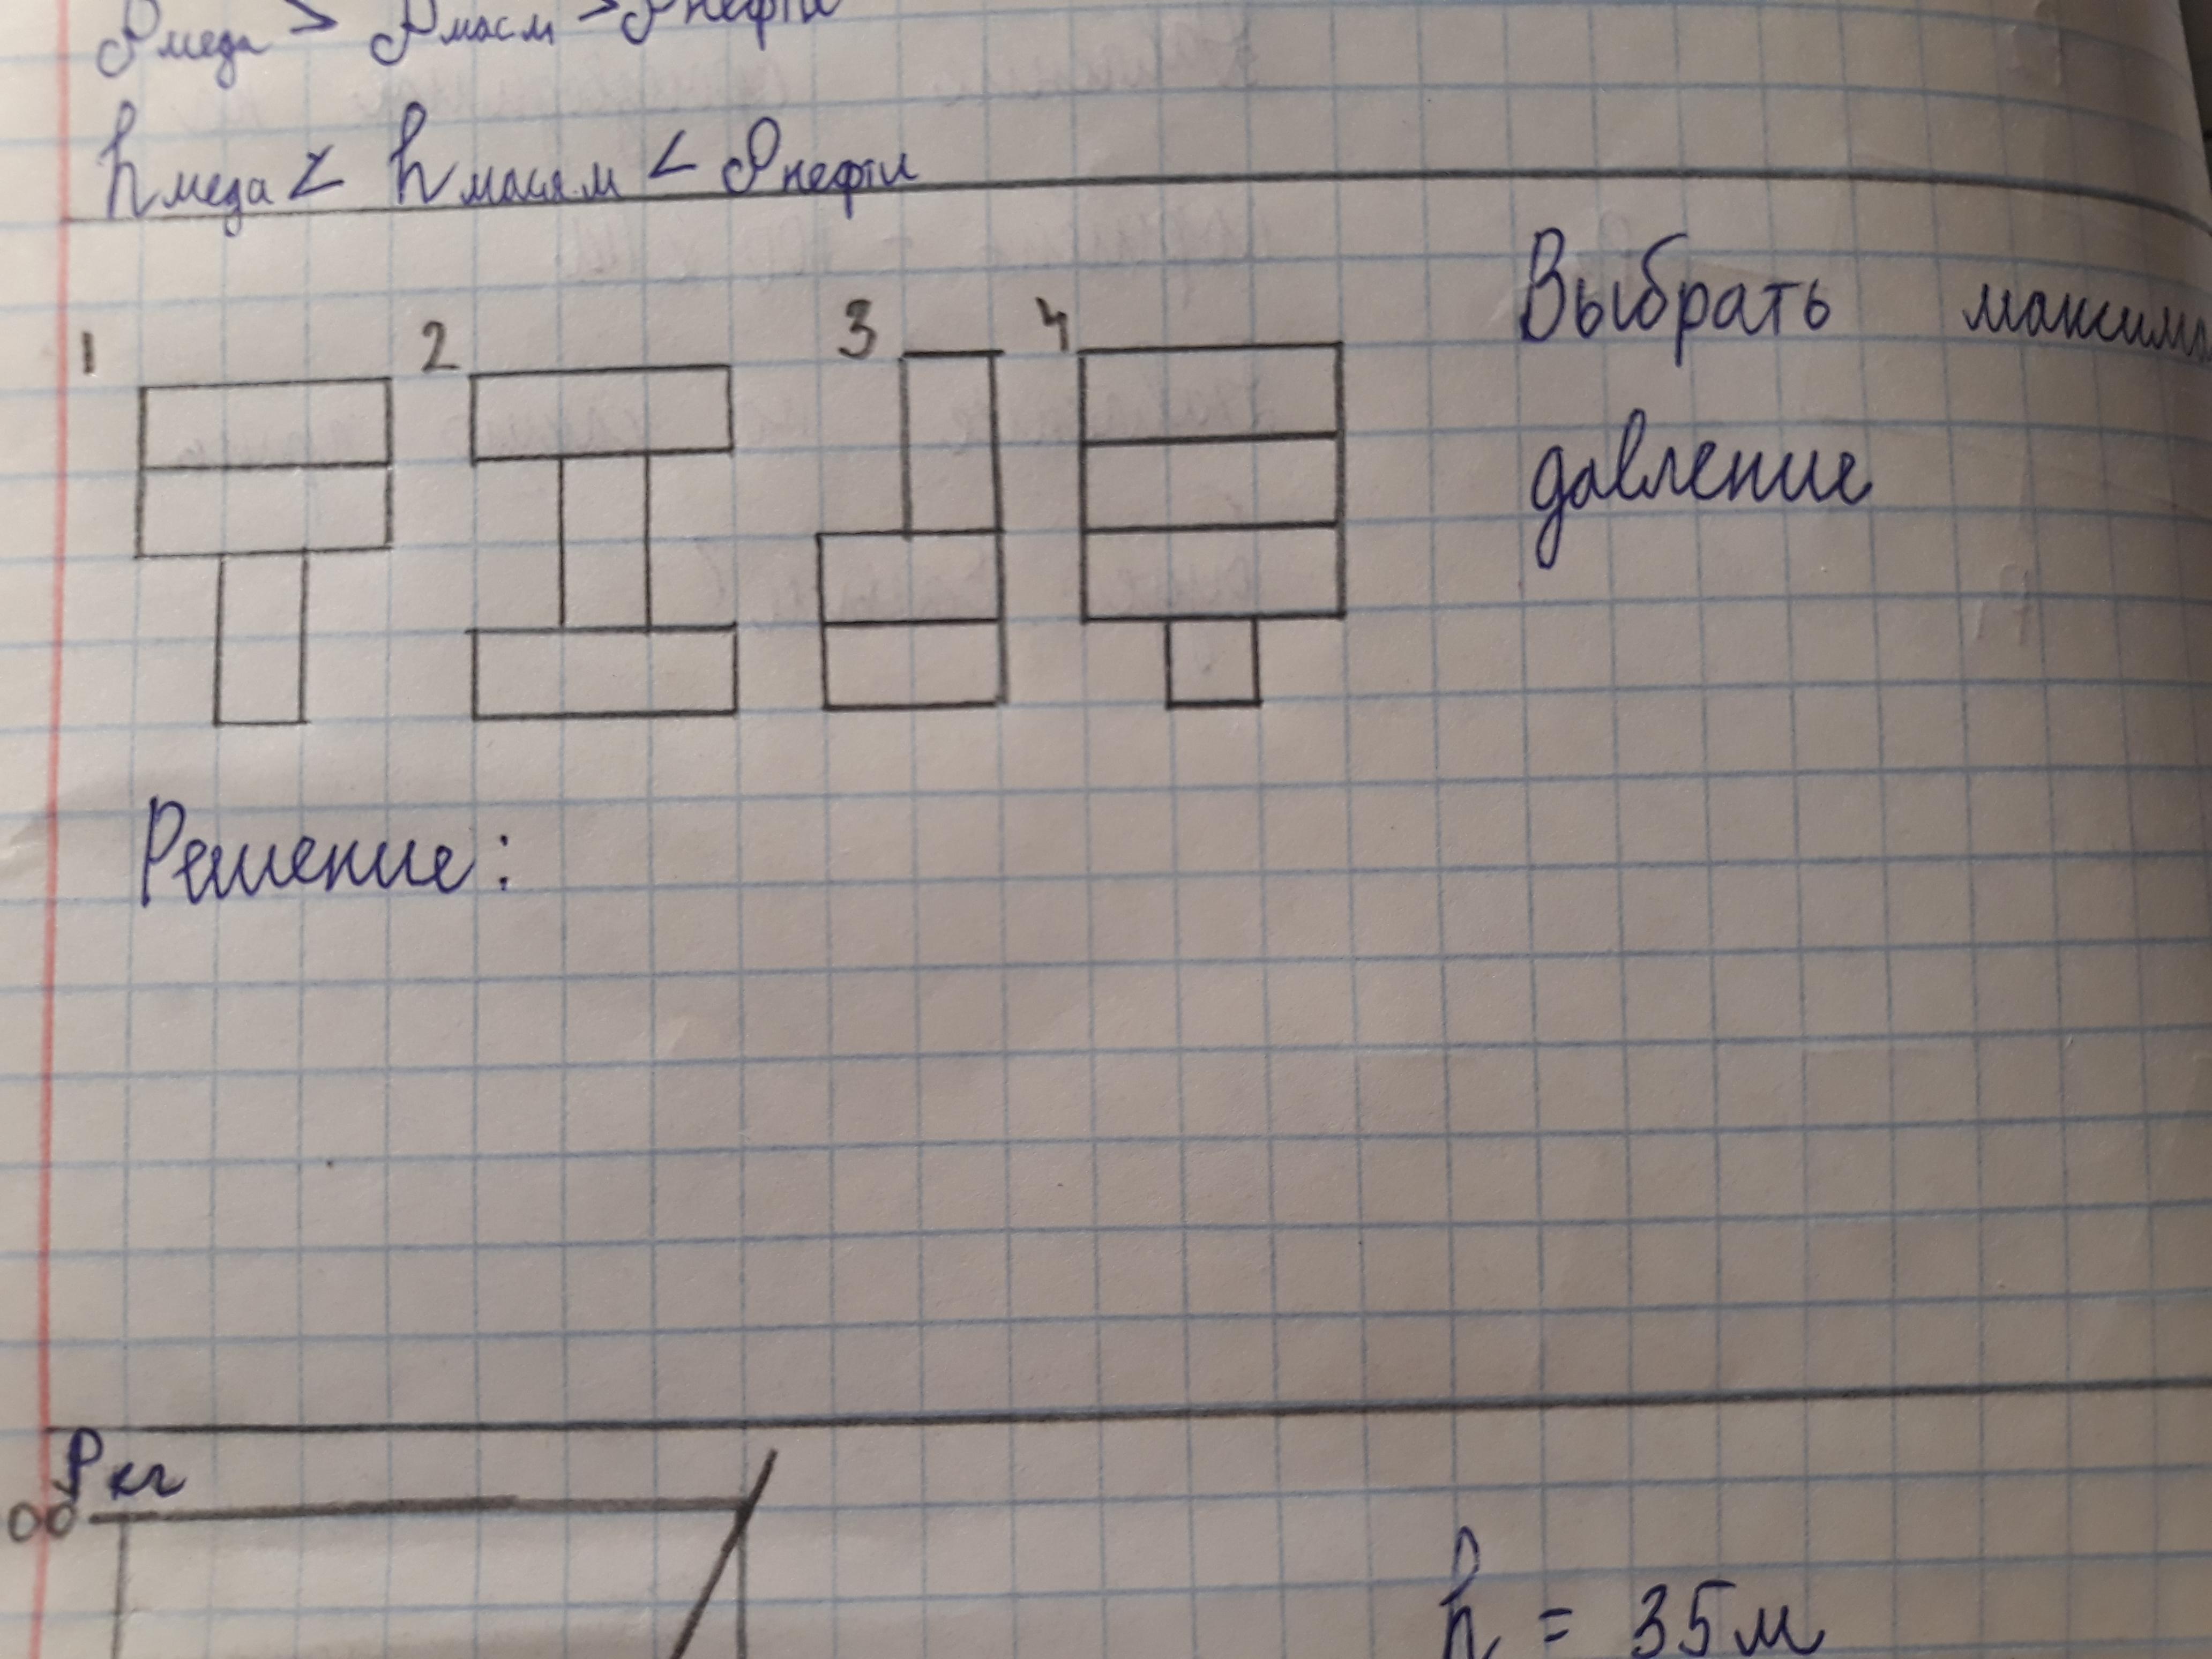 ρмеда > ρмасл > ρнефти
hмеда < hмасл.м < ρнефти
1 2 3 4
Выбрать
давление
Решение:
Pкг
00
h = 35м